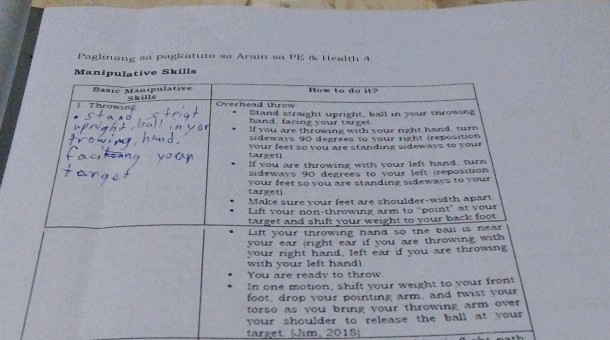 Paglinang sa pagkatuto sa Arain sa PE & Health 4
Manipulative Skills
Basic Manipulative
Skills
How to do it?
1. Throwing
• stand strigt
upright, ball in yor
trowing, hand,
target
Overhead throw
• Stand straight upright, ball in your throwing
hand, facing your target.
• If you are throwing with your right hand, turn
sideways 90 degrees to your right (reposition
your feet so you are standing sideways to your
target)
• If you are throwing with your left hand, turn
sideways 90 degrees to your left (reposition
your feet so you are standing sideways to your
target)
• Make sure your feet are shoulder-width apart
• Lift your non-throwing arm to "point" at your
target and shift your weight to your back foot
• Lift your throwing hand so the ball is near
your ear (right ear if you are throwing with
your right hand, left ear if you are throwing
with your left hand)
• You are ready to throw
• In one motion, shift your weight to your front
foot, drop your pointing arm, and twist your
torso as you bring your throwing arm over
your shoulder to release the ball at your
target. (Jim, 2018)